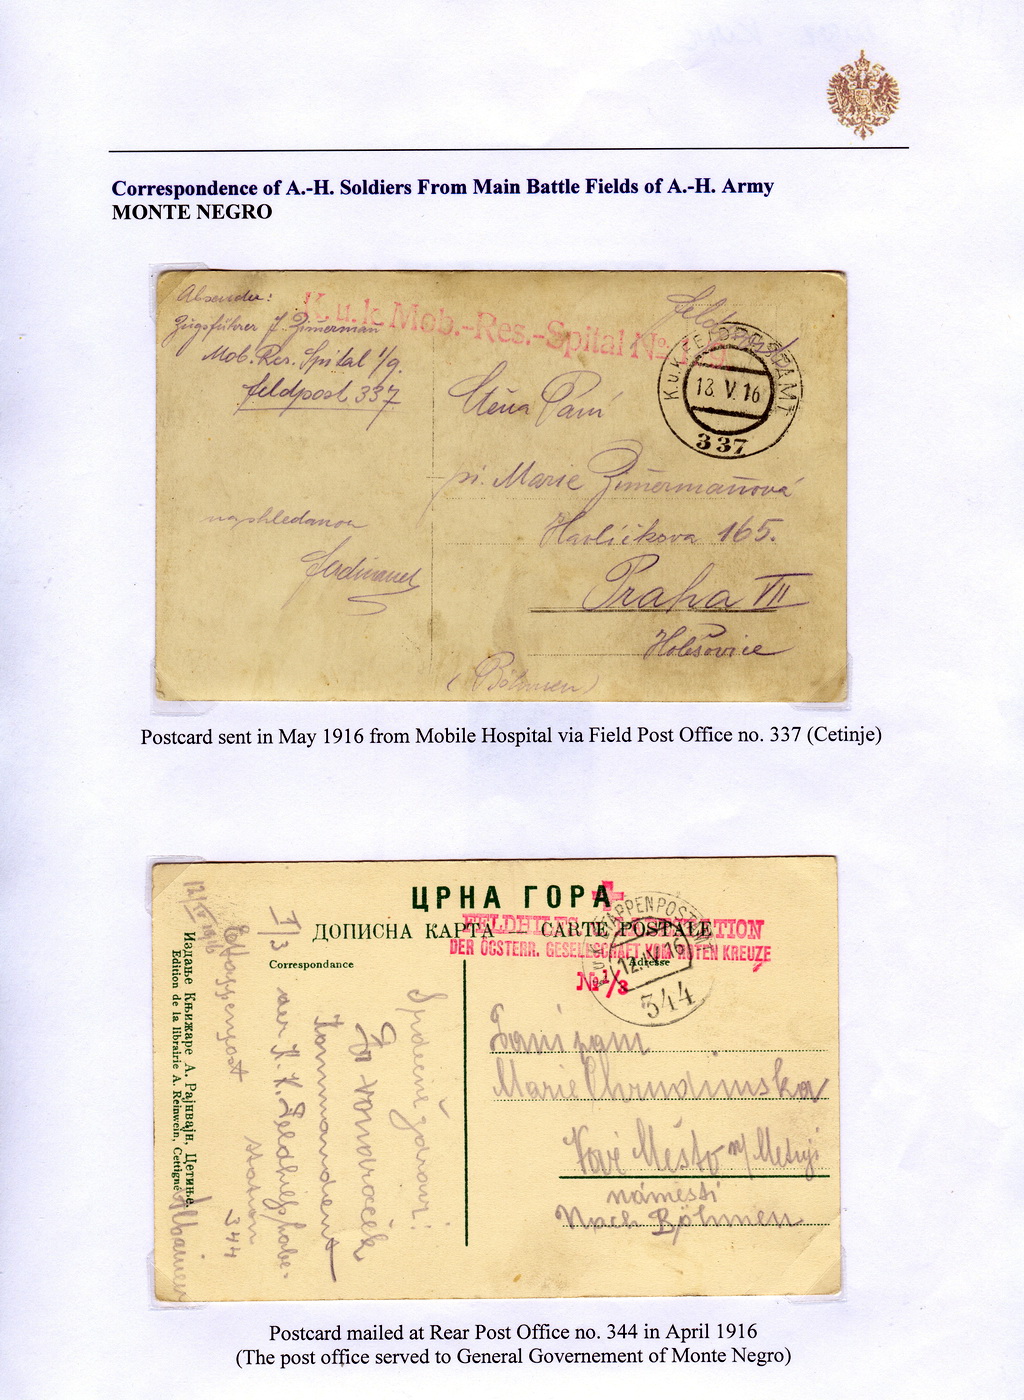 Correspondence of A.-H. Soldiers From Main Battle Fields of A.-H. Army
MONTE NEGRO
Absender:
Zugsführer J. Zimerman
Mob. Res. Spital 1/9.
Feldpost 337
K.u.k. Mob.-Res.-Spital No 1/9
Feldpost
K.u.K. FELDPOSTAMT
18. V. 16
337
Ctěná Paní
pí. Marie Zimermanová
Havlíčkova 165.
Praha VII
Holešovice
(Böhmen)
naschledanou
Ferdinand
Postcard sent in May 1916 from Mobile Hospital via Field Post Office no. 337 (Cetinje)
ЦРНА ГОРА
ДОПИСНА КАРТА — CARTE POSTALE
DER ÖSTERR. GESELLSCHAFT VOM ROTEN KREUZE
No 1/3
ETAPPENPOSTAMT
12. IV. 16
344
Correspondance
Adresse
Издање Књижаре А. Рајнвајн, Цетиње.
Edition de la librairie A. Reinwein, Cettigné
12/IV 1916
Etappenpost
station
344
Albanien
1/3
der K. K.
Kommandent
Srdečné zdraví!
Paní paní
Marie Chrudimska
Nové Město n/Metují
náměstí
Nach Böhmen
Postcard mailed at Rear Post Office no. 344 in April 1916
(The post office served to General Governement of Monte Negro)